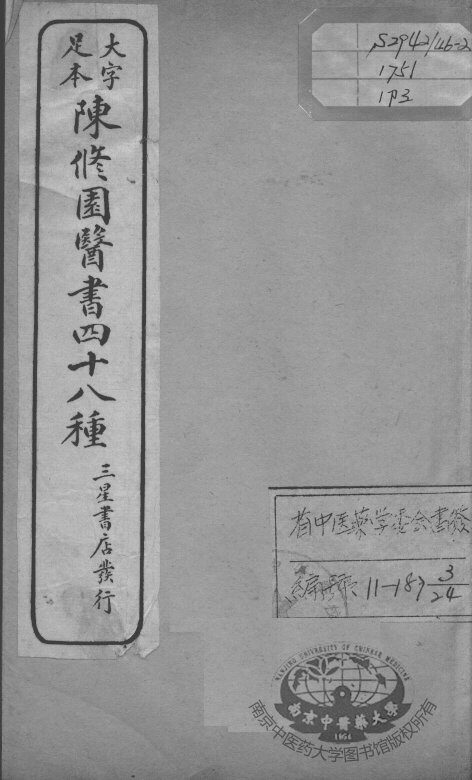 大字
足本
陳修園醫書四十八種
三星書店發行
S2942/46-2
1751
省中医藥学委会書
編號：11-187 3/24
NANJING UNIVERSITY OF CHINESE MEDICINE
南京中醫藥大學
1954
南京中医药大学图书馆版权所有